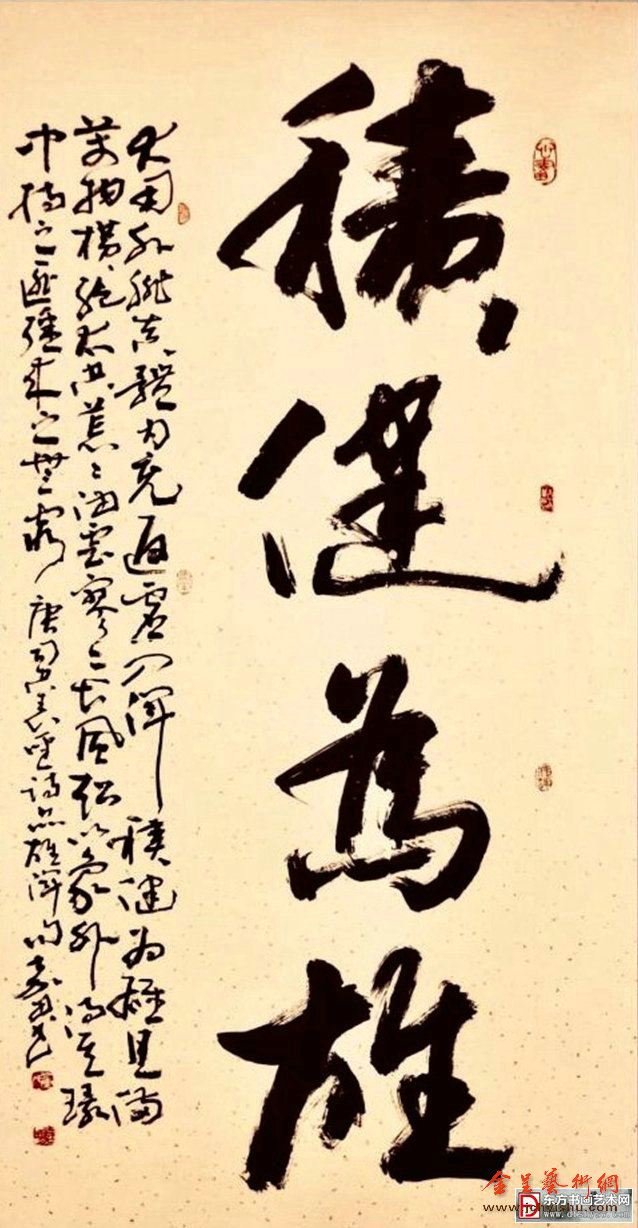 積健為雄
大用外腓真體内充返虛入渾積健為雄具備
萬物橫絕太空荒〻油雲寥〻長風超以象外得其環
中持之匪強來之無窮 唐司空圖詩品雄渾句
金呈藝術網
东方书画艺术网